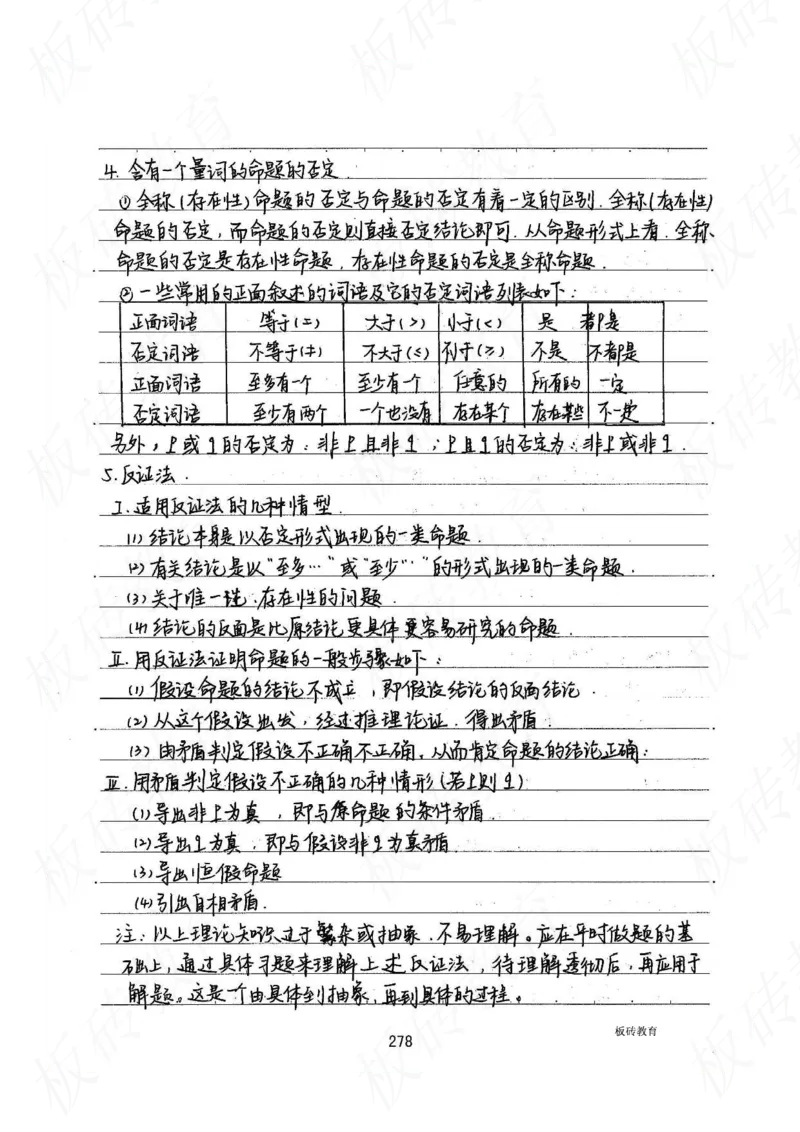 4. 含有一个量词的命题的否定
①全称(存在性)命题的否定与命题的否定有着一定的区别.全称(存在性)
命题的否定,而命题的否定则直接否定结论即可.从命题形式上看.全称、
命题的否定是存在性命题,存在性命题的否定是全称命题.
②一些常用的正面叙述的词语及它的否定词语列表如下:
正面词语 等于(=) 大于(>) 小于(<) 是 都是
否定词语 不等于(≠) 不大于(≤) 不小于(≥) 不是 不都是
正面词语 至多有一个 至少有一个 任意的 所有的 一定
否定词语 至少有两个 一个也没有 存在某个 存在某些 不一定
另外,p或q的否定为:非p且非q;p且q的否定为:非p或非q.
5.反证法.
Ⅰ.适用反证法的几种情型.
(1)结论本身是以否定形式出现的一类命题.
(2)有关结论是以“至多…”或“至少…”的形式出现的一类命题.
(3)关于唯一性、存在性的问题.
(4)结论的反面是比原结论更具体更容易研究的命题.
Ⅱ.用反证法证明命题的一般步骤如下:
(1)假设命题的结论不成立,即假设结论的反面结论.
(2)从这个假设出发,经过推理论证.得出矛盾.
(3)由矛盾判定假设不正确不正确,从而肯定命题的结论正确:
Ⅲ.用矛盾判定假设不正确的几种情形(若p则q)
(1)导出非p为真,即与原命题的条件矛盾.
(2)导出q为真,即与假设非q为真矛盾.
(3)导出恒假命题
(4)引出自相矛盾.
注:以上理论知识过于繁杂或抽象.不易理解。应在平时做题的基
础上,通过具体习题来理解上述反证法,待理解透彻后,再应用于
解题。这是一个由具体到抽象,再到具体的过程。
278
板砖教育